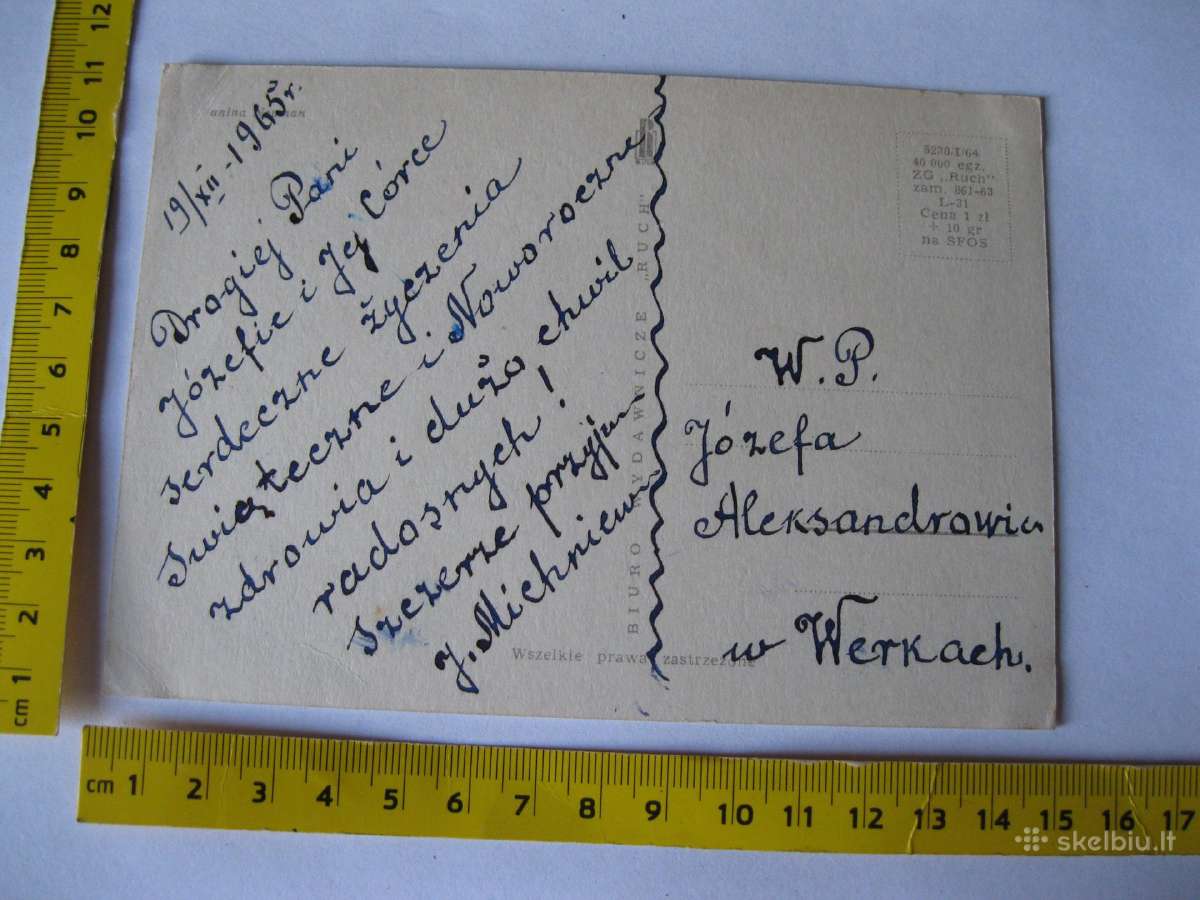 19/XII-1965 r.
Drogiej Pani
Józefie i Jej Córce
serdeczne życzenia
Świąteczne i Noworoczne
zdrowia i dużo chwil
radosnych!
szczerze
J.
BIURO WYDAWNICZE „RUCH"
Wszelkie prawa zastrzeżone
5230/I/64
40 000 egz.
ZG „Ruch"
zam. 861-63
L-31
Cena 1 zł
+ 10 gr
na SFOS
W. P.
Józefa
Aleksandrowicz
w Werkach.
12
11
10
9
8
7
6
5
4
3
2
1
cm
cm 1 2 3 4 5 6 7 8 9 10 11 12 13 14 15 16 17
skelbiu.lt